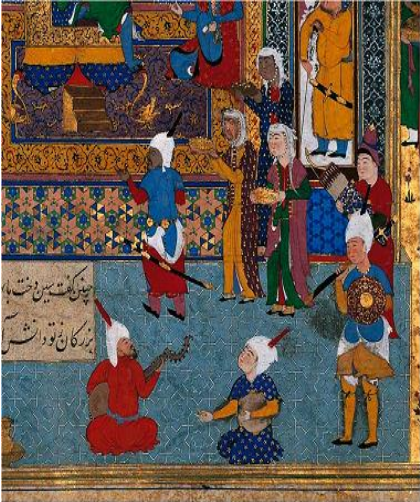 چنین گفت سین دخت با
بزرگان ز تو دانش